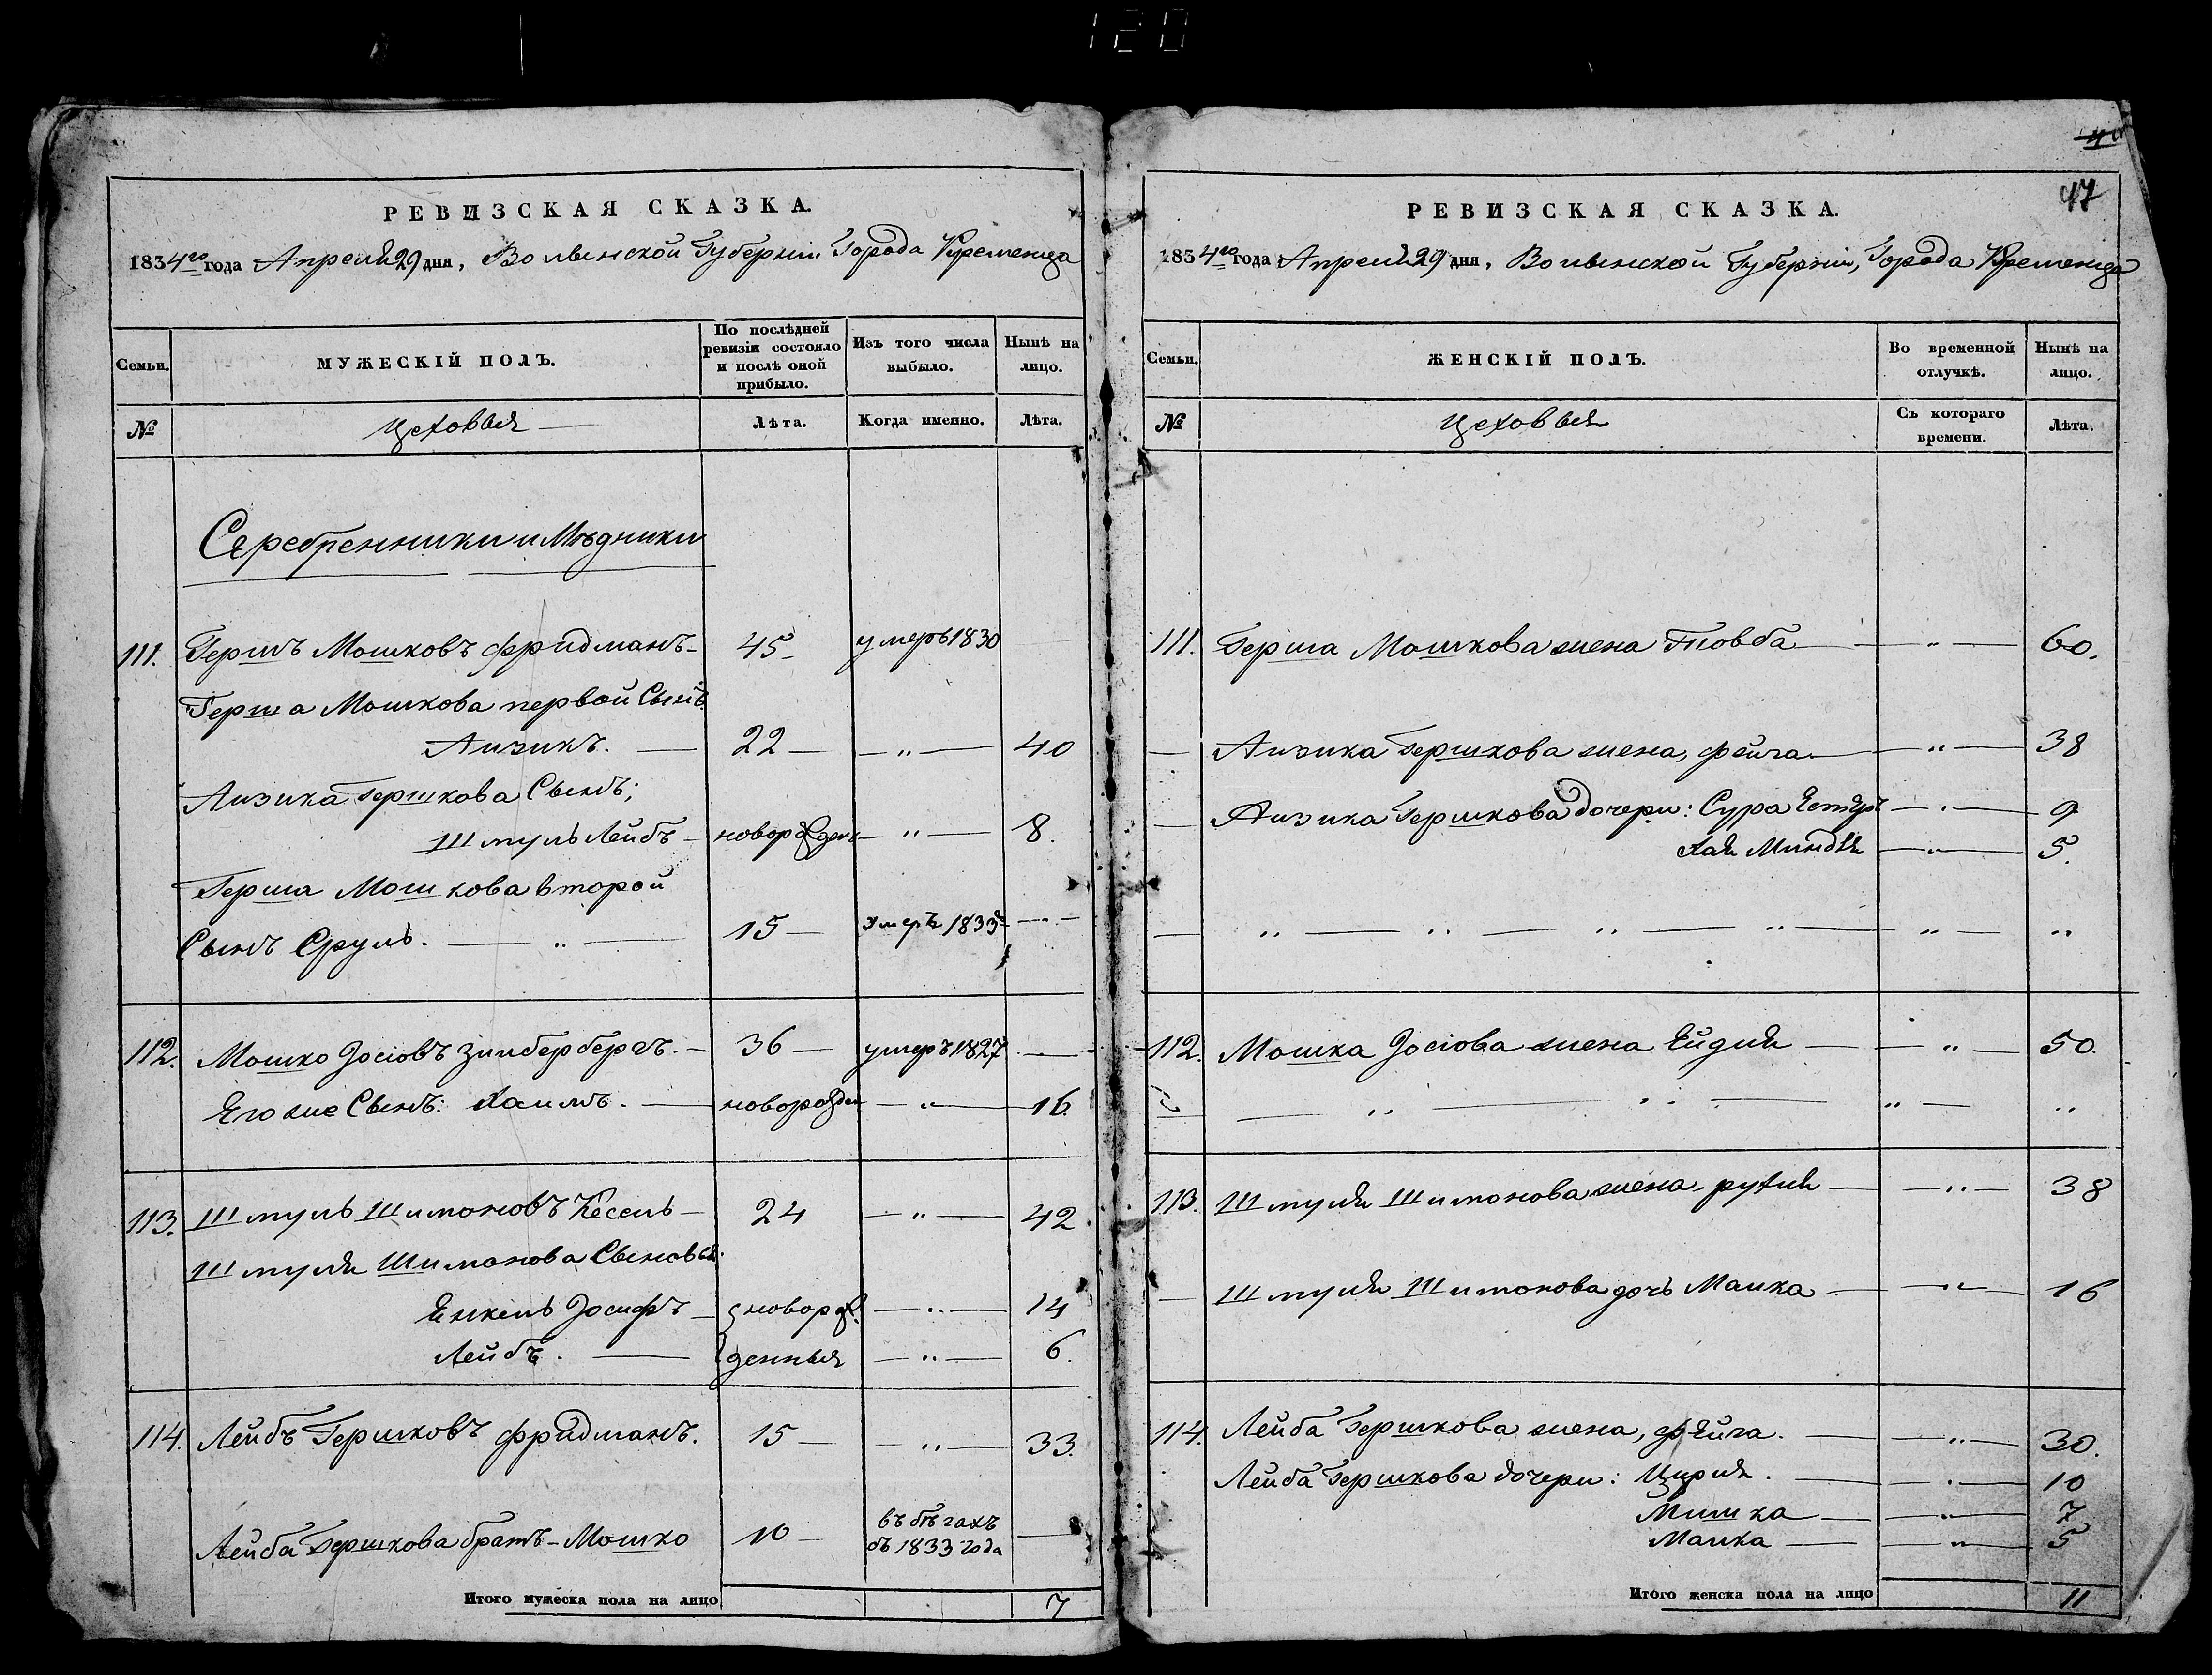 120
РЕВИЗСКАЯ СКАЗКА.
1834го года Апреля 29 дня, Волынской Губернiи Города Кременца
Семьи.
МУЖЕСКIЙ ПОЛЪ.
По послѣдней ревизiи состояло и послѣ оной прибыло.
Изъ того числа выбыло.
Нынѣ на лицо.
№
Цеховыя
Лѣта.
Когда именно.
Лѣта.
Серебренники и Мѣдники
111. Гершъ Мошковъ Фридманъ 45 умеръ 1830
Герша Мошкова первой Сынъ
Аизикъ. 22 — „ — 40
Аизика Гершкова Сынъ;
Шмуль Лейбъ новорожден — „ — 8.
Герша Мошкова второй
Сынъ Сруль. — „ — 15 умеръ 1833
112. Мошко Iосiовъ Зильбербергъ. 36 умеръ 1827 —
Его же Сынъ: Хаимъ. новорожден — „ — 16.
113. Шмуль Шимоновъ Кесель 24 — „ — 42
Шмуля Шимонова Сыновья:
Янкель Iосифъ новорож — „ — 14
Лейбъ. денныя — „ — 6.
114. Лейбъ Гершковъ Фридманъ. 15 — „ — 33.
Лейба Гершкова братъ - Мошко 10 въ бѣгахъ съ 1833 года —
Итого мужеска пола на лицо 7
47
РЕВИЗСКАЯ СКАЗКА.
1834го года Апреля 29 дня, Волынской Губернiи, Города Кременца
Семьи.
ЖЕНСКIЙ ПОЛЪ.
Во временной отлучкѣ.
Нынѣ на лицо.
№
Цеховыя
Съ котораго времени.
Лѣта.
111. Герша Мошкова жена Товба — „ — 60.
Аизика Гершкова жена, Фейга — „ — 38
Аизика Гершкова дочери: Сура Естеръ — „ — 9
Хая Миндля — „ — 5.
— „ — „ — „ — „ — „ — „
112. Мошка Iосiова жена Ейдля — „ — 50.
— „ — „ — „ — „
113. Шмуля Шимонова жена рухля — „ — 38
Шмуля Шимонова дочь Малка — „ — 16
114. Лейба Гершкова жена, Фейга. — „ — 30.
Лейба Гершкова дочери: Цирля. — „ — 10
Мишка — „ — 7
Малка — „ — 5
Итого женска пола на лицо 11